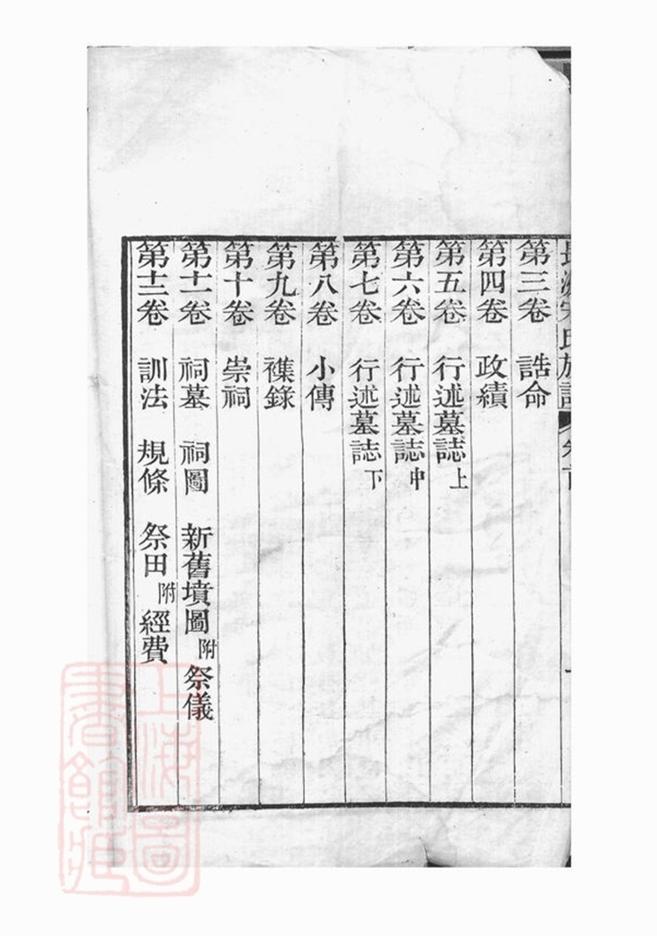 第三卷　誥命
第四卷　政績
第五卷　行述墓誌上
第六卷　行述墓誌中
第七卷　行述墓誌下
第八卷　小傳
第九卷　襍錄
第十卷　崇祠
第十一卷　祠墓　祠圖　新舊墳圖附祭儀
第十二卷　訓法　規條　祭田附經費
上海圖書館藏